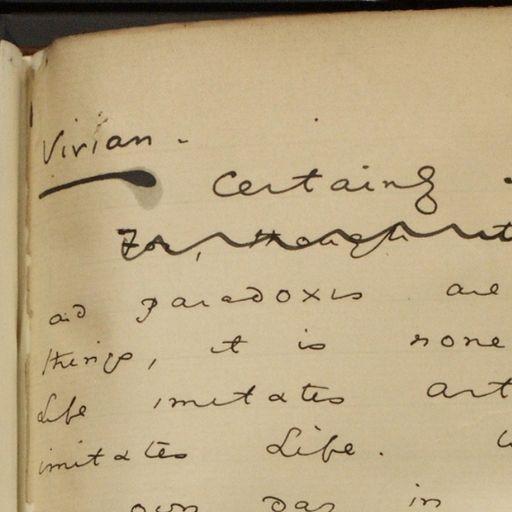 Vivian -
Certainly
For, though it
and paradoxes are
things, it is none
Life imitates art
imitates Life.
own day in